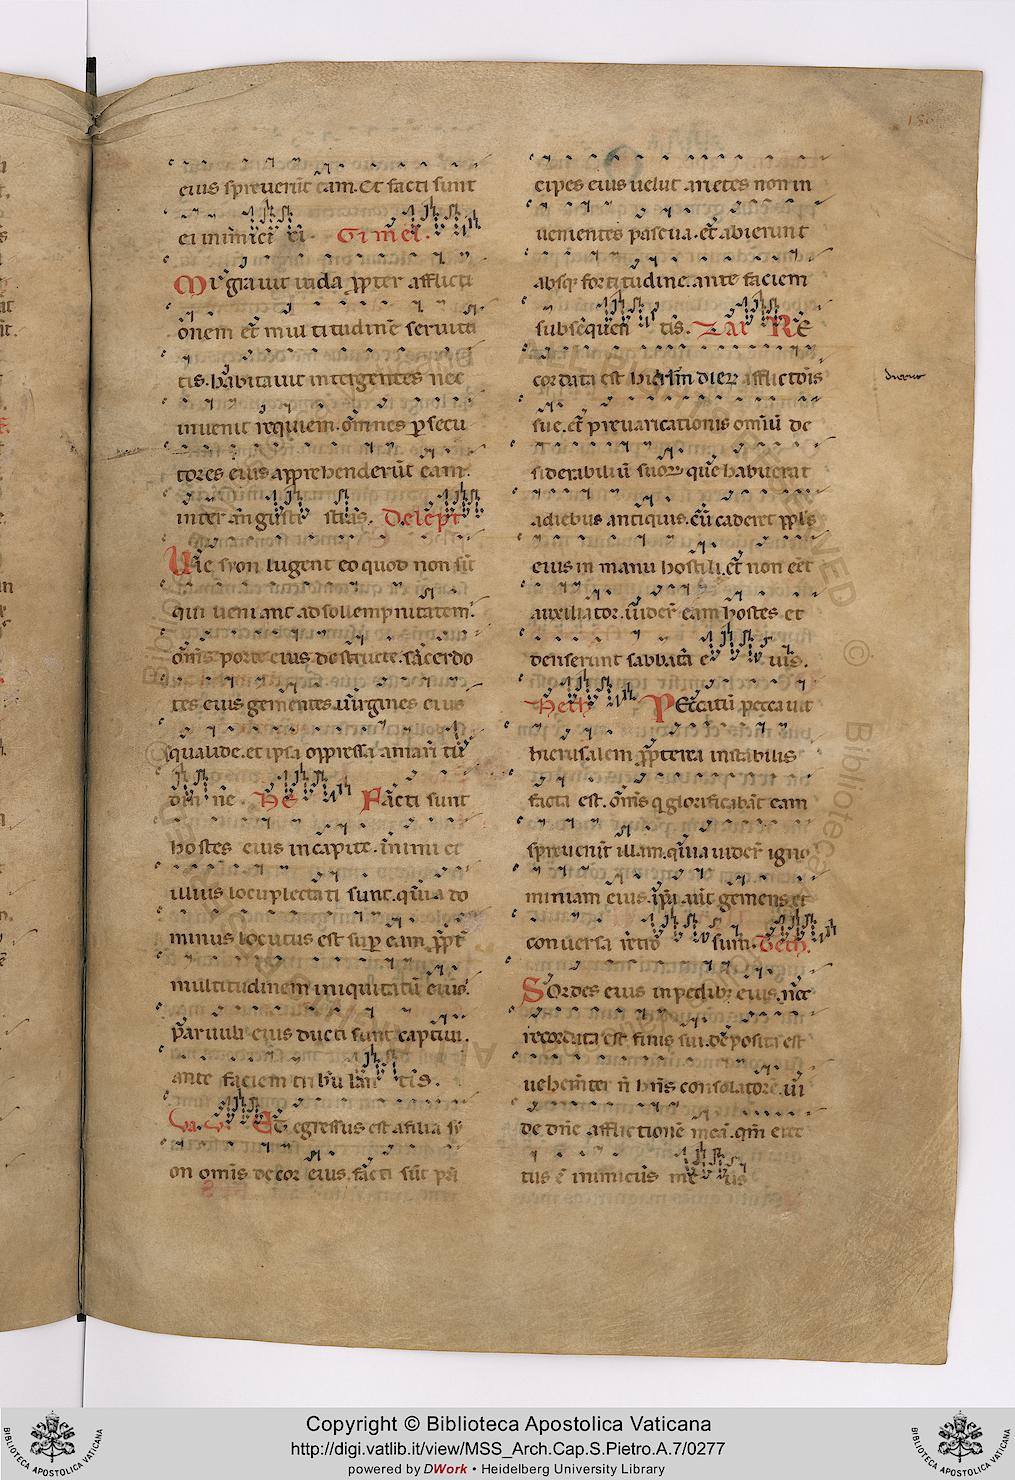 eius spreuerūt eam. Et facti sunt
ei inimici ei Gimel.
Migrauit iuda ꝓpter afflicti
onem et multitudinē seruitu
tis. habitauit inter gentes nec
inuenit requiem. omnes ꝑsecu
tores eius apprehenderūt eam.
inter angusti stias. Deleth
Uie syon lugent eo quod non sīt
qui ueniant ad sollempnitatem.
om̄s porte eius destructe. sacerdo
tes eius gementes. uirgines eius
qualide. et ipsa oppressa amarit
dīn ne. He Facti sunt
hostes eius in capite. inimici et
illius locupletati sunt. quia do
minus locutus est suꝑ eam ꝓpt̄
multitudinem iniquitatū eius.
Paruuli eius ducti sunt captiui.
ante faciem tribulan tis.
Va.u. Et egressus est a filia sy
on om̄s decor eius. facti sūt prī
cipes eius uelut arietes non in
uenientes pascua. et abierunt
absqꝫ fortitudine. ante faciem
subsequen tis. Zai RE
cordata est hierl̄m dierꝝ afflictōis
sue. et preuaricationis omiū de
siderabiliū suorꝝ que habuerat
a diebus antiquis. cū caderet ppl̄s
eius in manu hostili. et non eēt
auxiliator. uider̄ eam hostes et
denserunt sabbata e ius.
Heth PEccatū peccauit
hierusalem ꝓpterea instabilis
facta est. om̄s q glorificabāt eam
spreuerūt illam. quia uider̄ igno
miniam eius. ip̄a aūt gemens. et
conuersa retro sum. Teth.
SOrdes eius in pedibꝫ eius. nec
recordata est finis sui. deposita est
uehemēter n̄ hn̄s consolatorē. ui
de dn̄e afflictionē meā. qm̄ erec
tus ē inimicus me us
Copyright © Biblioteca Apostolica Vaticana
http://digi.vatlib.it/view/MSS_Arch.Cap.S.Pietro.A.7/0277
powered by DWork • Heidelberg University Library
BIBLIOTECA APOSTOLICA VATICANA
BIBLIOTECA APOSTOLICA VATICANA